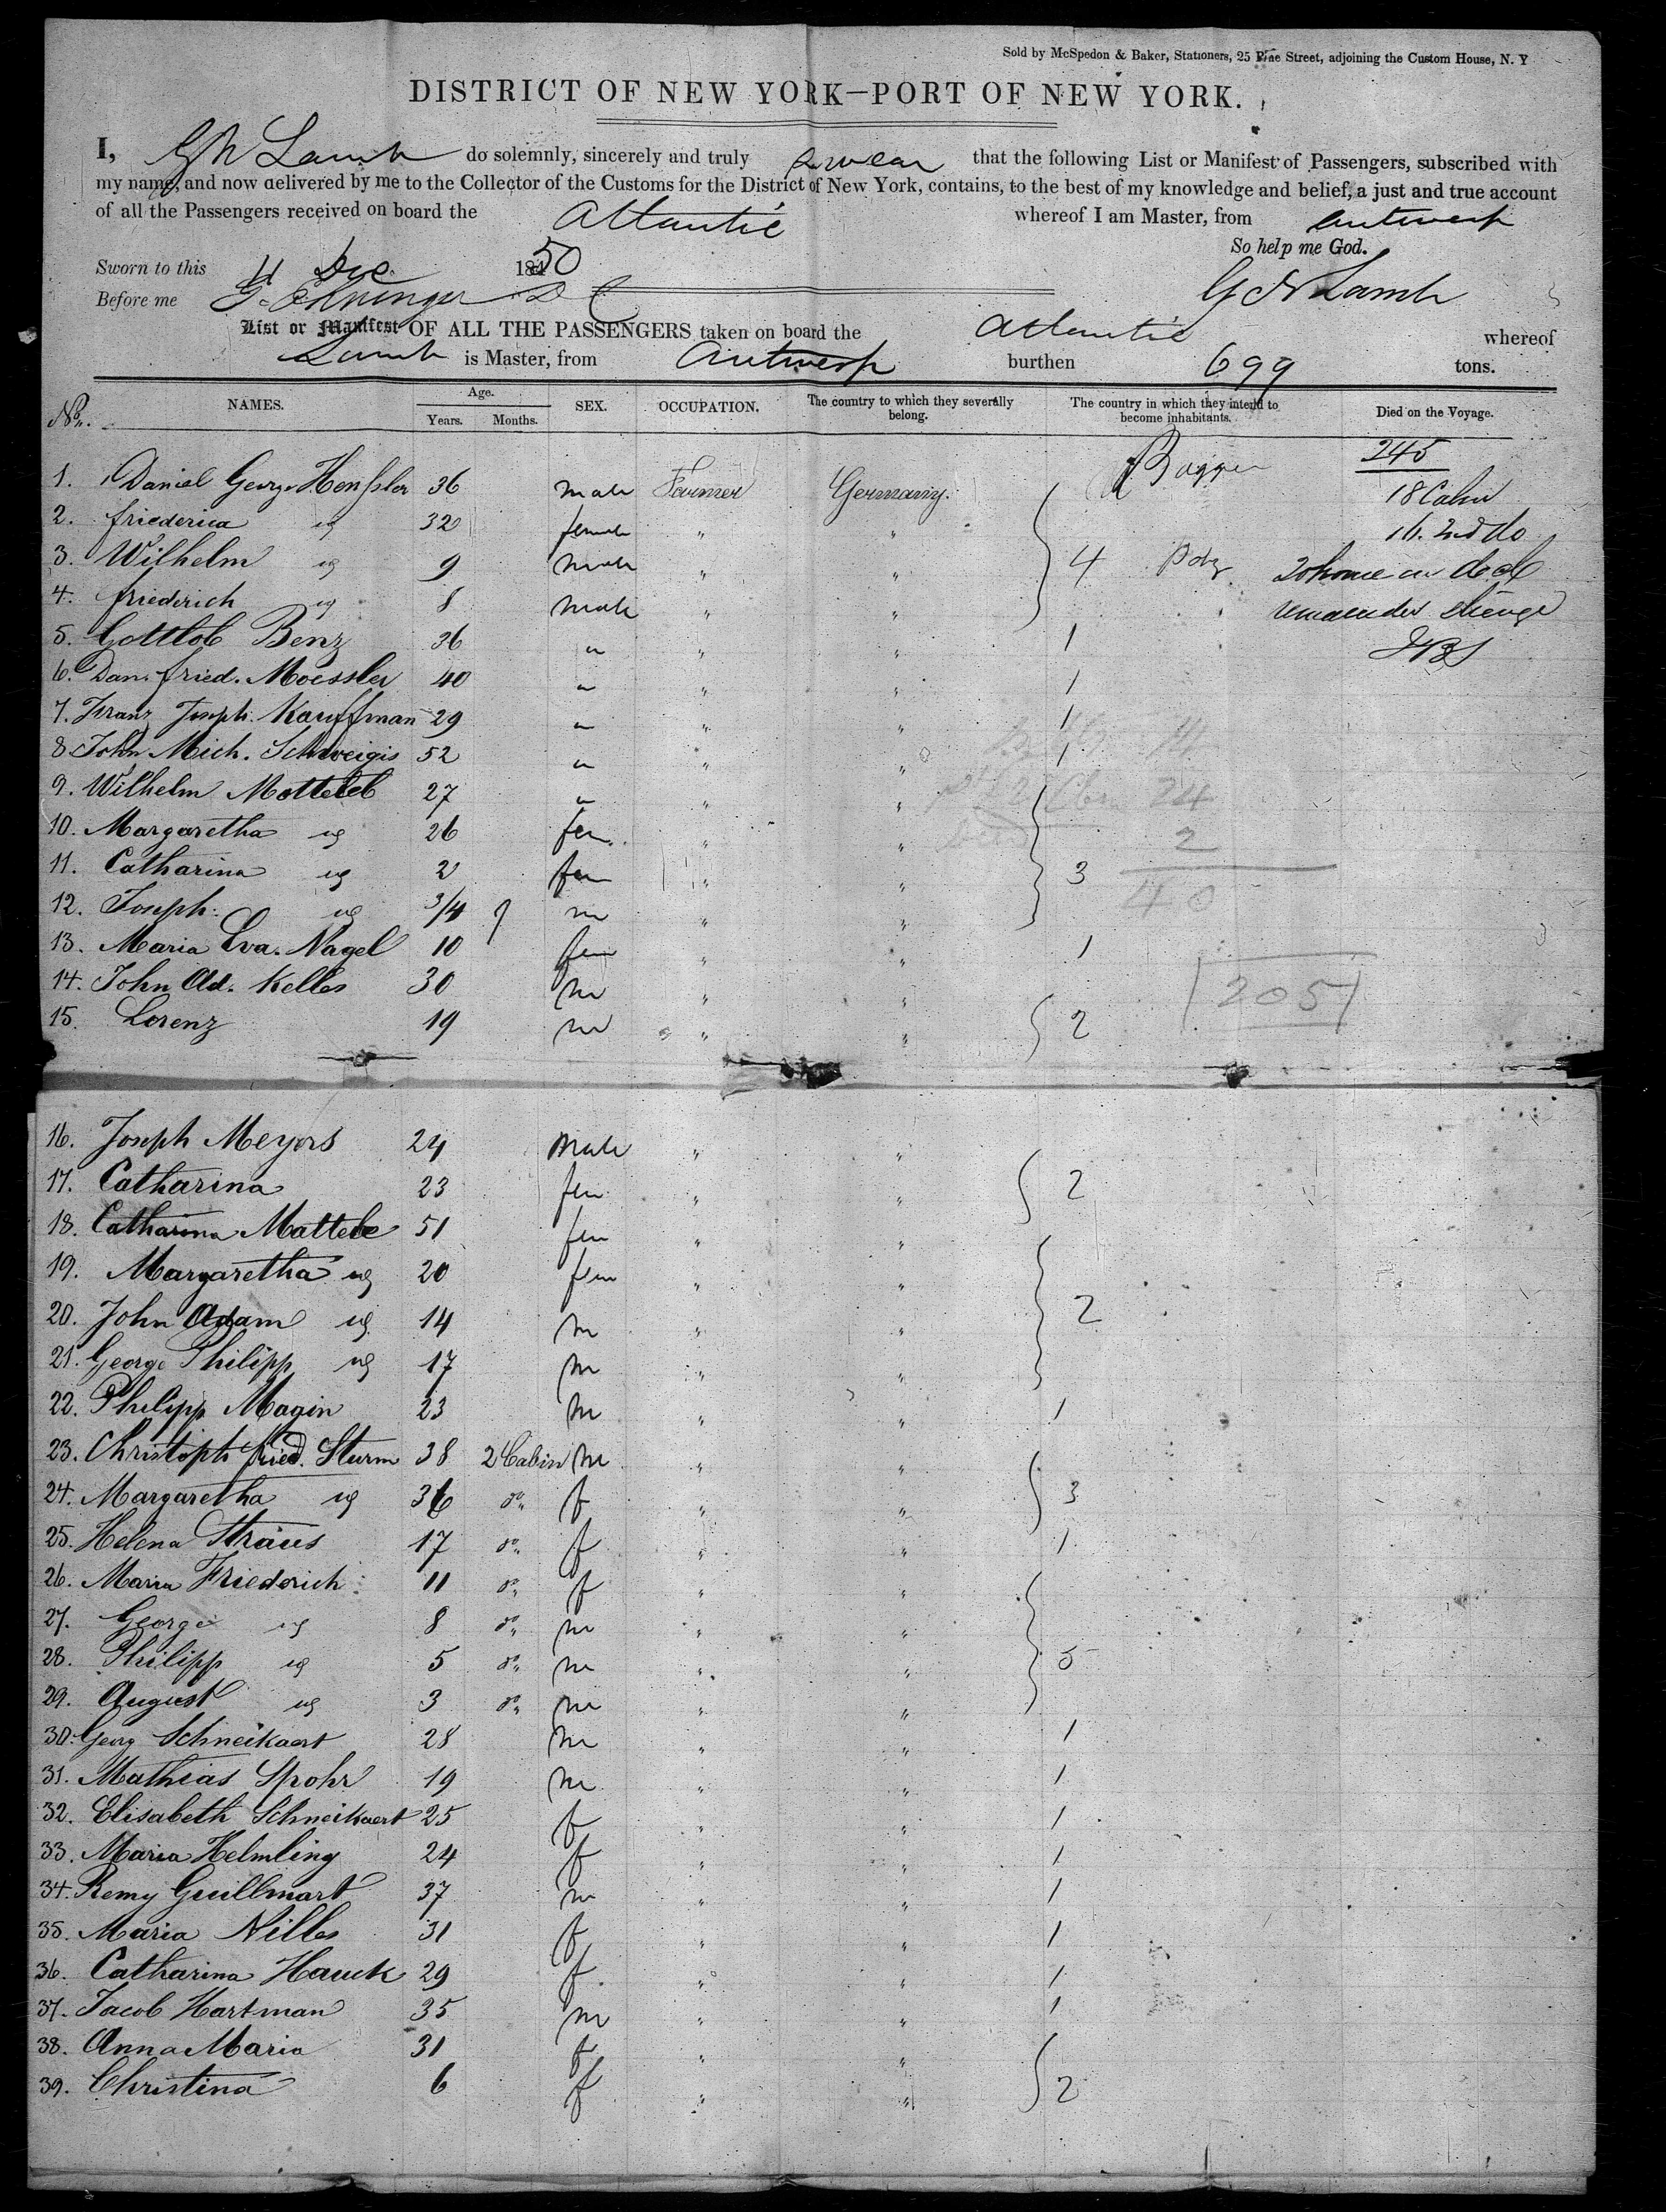 Sold by McSpedon & Baker, Stationers, 25 Pine Street, adjoining the Custom House, N. Y
DISTRICT OF NEW YORK—PORT OF NEW YORK.
I, G W Lamb do solemnly, sincerely and truly swear that the following List or Manifest of Passengers, subscribed with
my name, and now delivered by me to the Collector of the Customs for the District of New York, contains, to the best of my knowledge and belief, a just and true account
of all the Passengers received on board the Atlantic whereof I am Master, from Antwerp
So help me God.
Sworn to this 11 Dec. 1850
Before me
G W Lamb
List or Manifest OF ALL THE PASSENGERS taken on board the Atlantic whereof
Lamb is Master, from Antwerp burthen 699 tons.
No. NAMES. Age. Years. Months. SEX. OCCUPATION. The country to which they severally belong. The country in which they intend to become inhabitants. Died on the Voyage.
245
1. Daniel Georg Henssler 36 male Farmer Germany. 18 Cabin
2. friederica " 32 female " " 16. 2nd do
3. Wilhelm " 9 male " " 4 20 house on deck
4. friederich " 8 male " " remainder
5. Gottlob Benz 36 " " " 1
6. Dan. fried. Moessler 40 " " " 1
7. Franz Joseph. Kauffman 29 " " " 1
8. John Mich. Schweigis 52 " " " 1 14
9. Wilhelm Motteleb 27 " " " 24
10. Margaretha " 26 fem. " " 2
11. Catharina " 2 fem " " 3
12. Joseph. " 3/4 m " " 40
13. Maria Eva. Nagel 10 fem " " 1
14. John Ad. Kelles 30 m " " 205
15. Lorenz 19 m " " 2
16. Joseph Meyers 24 male " "
17. Catharina 23 fem " " 2
18. Catharina Mattele 51 fem " "
19. Margaretha " 20 fem " "
20. John Adam " 14 m " " 2
21. George Philipp " 17 m " "
22. Philipp Magin 23 m " " 1
23. Christoph fried. Sturm 38 2 Cabin m " "
24. Margaretha " 36 do f " " 3
25. Helena Straus 17 do f " " 1
26. Maria Friederich 11 do f " "
27. George " 8 do m " "
28. Philipp " 5 do m " " 5
29. August " 3 do m " "
30. Georg Schneikaert 28 m " " 1
31. Mathias Spohr 19 m " " 1
32. Elisabeth Schneikaert 25 f " " 1
33. Maria Helmling 24 f " " 1
34. Remy Guillmart 37 m " " 1
35. Maria Nilles 31 f " " 1
36. Catharina Hauck 29 f " " 1
37. Jacob Hartman 35 m " " 1
38. Anna Maria 31 f " "
39. Christina 6 f " " 2